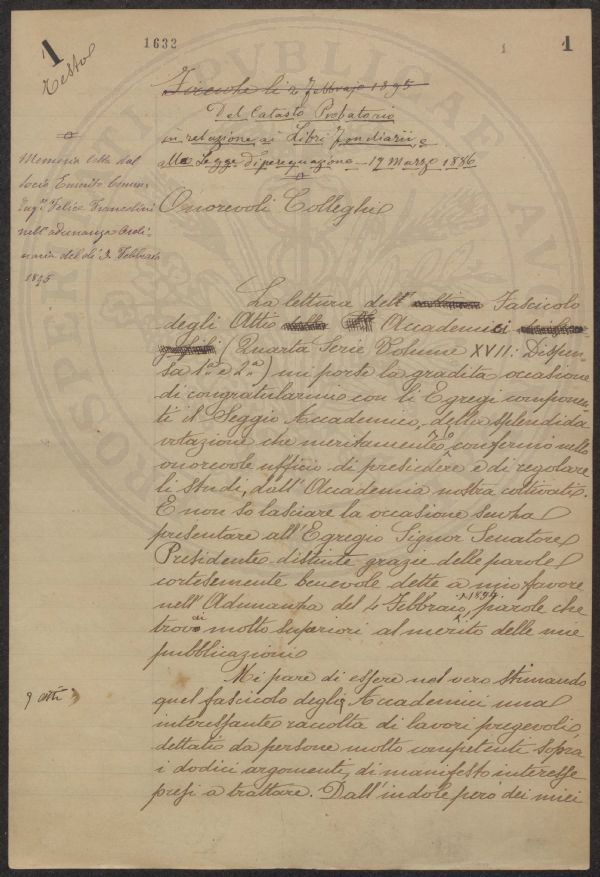 1
Testo
1632
1
1
Firenze li 2 Febbrajo 1895
Del Catasto Probatorio
in relazione ai Libri Fondiarii, e
alla Legge di perequazione – 1º Marzo 1886
Memoria letta dal
Socio Emerito
Ing.e Felice Francolini
nell'adunanza Ordi-
naria del dì 3 Febbraio
1895
Onorevoli Colleghi
La lettura dell' Fascicolo
degli Atti Accademici
(Quarta Serie Volume XVII: Dispen-
sa 1.a e 2.a) mi porse la gradita occasione
di congratularmi con li Egregi componen-
ti il Seggio Accademico, della splendida
votazione che meritamente lo confermò nello
onorevole ufficio di presiedere e di regolare
li studi, dall'Accademia nostra coltivati.
E non so lasciare la occasione senza
presentare all'Egregio Signor Senatore
Presidente distinte grazie delle parole
cortesemente benevole dette a mio favore
nell'Adunanza del 4 Febbraio 1894, parole che
trovai molto superiori al merito delle mie
pubblicazioni
Mi pare di essere nel vero stimando
quel fascicolo degli Accademici una
9 Atti
interessante raccolta di lavori pregevoli
dettati da persone molto competenti sopra
i dodici argomenti, di manifesto interesse
presi a trattare. Dall'indole però dei miei